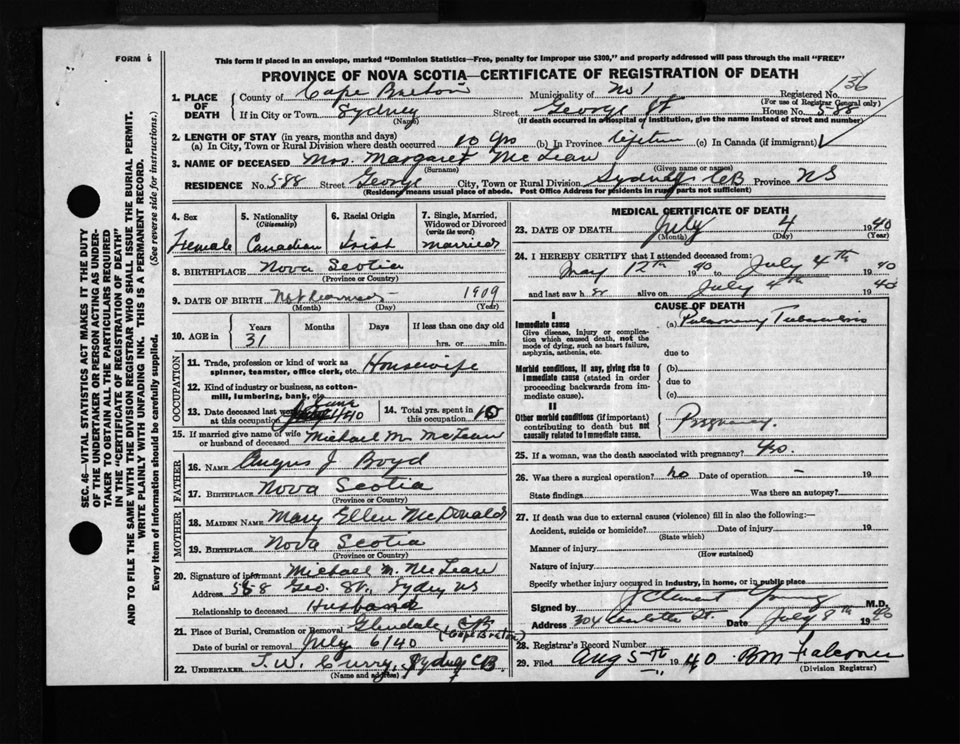 FORM 6
This form if placed in an envelope, marked "Dominion Statistics—Free, penalty for improper use $300," and properly addressed will pass through the mail "FREE"
PROVINCE OF NOVA SCOTIA—CERTIFICATE OF REGISTRATION OF DEATH
136
1. PLACE OF DEATH County of Cape Breton Municipality of No 1 Registered No.
(For use of Registrar General only)
If in City or Town Sydney Street George St House No. 588
(Name) (If death occurred in a hospital of institution, give the name instead of street and number)
2. LENGTH OF STAY (in years, months and days)
(a) In City, Town or Rural Division where death occurred 10 yrs (b) In Province lifetime (c) In Canada (if immigrant)
3. NAME OF DECEASED Mrs. Margaret McLean
(Surname) (Given name or names)
RESIDENCE No. 588 Street George City, Town or Rural Division Sydney CB Province NS
(Residence means usual place of abode. Post Office Address for residents in rural parts not sufficient)
SEC. 46—VITAL STATISTICS ACT MAKES IT THE DUTY
OF THE UNDERTAKER OR PERSON ACTING AS UNDER-
TAKER TO OBTAIN ALL THE PARTICULARS REQUIRED
IN THE "CERTIFICATE OF REGISTRATION OF DEATH"
AND TO FILE THE SAME WITH THE DIVISION REGISTRAR WHO SHALL ISSUE THE BURIAL PERMIT.
WRITE PLAINLY WITH UNFADING INK. THIS IS A PERMANENT RECORD.
Every item of information should be carefully supplied. (See reverse side for instructions.)
4. Sex 5. Nationality (Citizenship) 6. Racial Origin 7. Single, Married, Widowed or Divorced (write the word)
Female Canadian Irish married
8. BIRTHPLACE Nova Scotia
(Province or Country)
9. DATE OF BIRTH Not known 1909
(Month) (Day) (Year)
10. AGE in Years Months Days If less than one day old
31 hrs. or min.
OCCUPATION
11. Trade, profession or kind of work as spinner, teamster, office clerk, etc. Housewife
12. Kind of industry or business, as cotton-mill, lumbering, bank, etc.
13. Date deceased last worked at this occupation June 1940 14. Total yrs. spent in this occupation 10
15. If married give name of wife or husband of deceased Michael M. McLean
FATHER
16. NAME Angus J Boyd
17. BIRTHPLACE Nova Scotia
(Province or Country)
MOTHER
18. MAIDEN NAME Mary Ellen McDonald
19. BIRTHPLACE Nova Scotia
(Province or Country)
20. Signature of informant Michael M. McLean
Address 588 Geo. St., Sydney NS
Relationship to deceased Husband
21. Place of Burial, Cremation or Removal Glendale (Cape Breton)
Date of burial or removal July 6/40
22. UNDERTAKER T.W. Curry, Sydney CB.
(Name and address)
MEDICAL CERTIFICATE OF DEATH
23. DATE OF DEATH July 4 1940
(Month) (Day) (Year)
24. I HEREBY CERTIFY that I attended deceased from:
May 12th 1940 to July 4th 1940
and last saw her alive on July 4th 1940
CAUSE OF DEATH
I
Immediate cause (a) Pulmonary Tuberculosis
Give disease, injury or complication which caused death, not the mode of dying, such as heart failure, asphyxia, asthenia, etc.
due to
Morbid conditions, if any, giving rise to immediate cause (stated in order proceeding backwards from immediate cause). (b)
due to
(c)
II
Other morbid conditions (if important) contributing to death but not causally related to immediate cause. Pregnancy.
25. If a woman, was the death associated with pregnancy? yes.
26. Was there a surgical operation? no Date of operation – 19
State findings Was there an autopsy?
27. If death was due to external causes (violence) fill in also the following:—
Accident, suicide or homicide? Date of injury 19
(State which)
Manner of injury
(How sustained)
Nature of injury
Specify whether injury occurred in industry, in home, or in public place
Signed by J Clement Young M.D.
Address 304 Charlotte St. Date July 8th 1940
28. Registrar's Record Number
29. Filed Aug 5th 1940 BM Falconer
(Division Registrar)